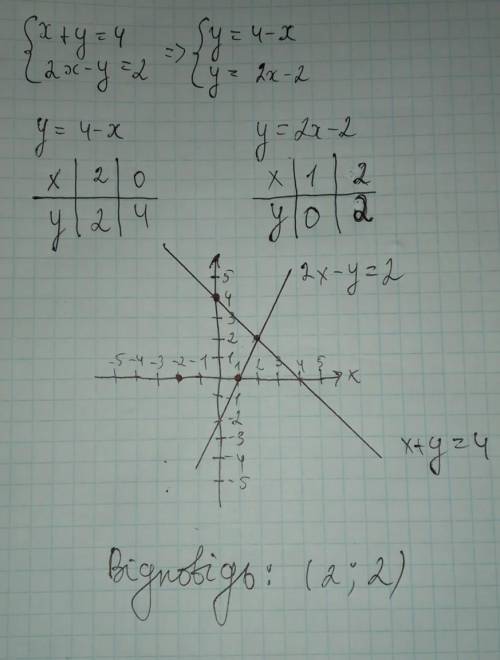 {x+y=4 => {y=4-x
{2x-y=2 {y= 2x-2
y=4-x y=2x-2
x | 2 | 0 x | 1 | 2
y | 2 | 4 y | 0 | 2
5
2x-y=2
4
3
2
1
-5 -4 -3 -2 -1 1 2 3 4 5 x
-1
-2
-3
-4
-5
x+y=4
Відповідь: (2; 2)